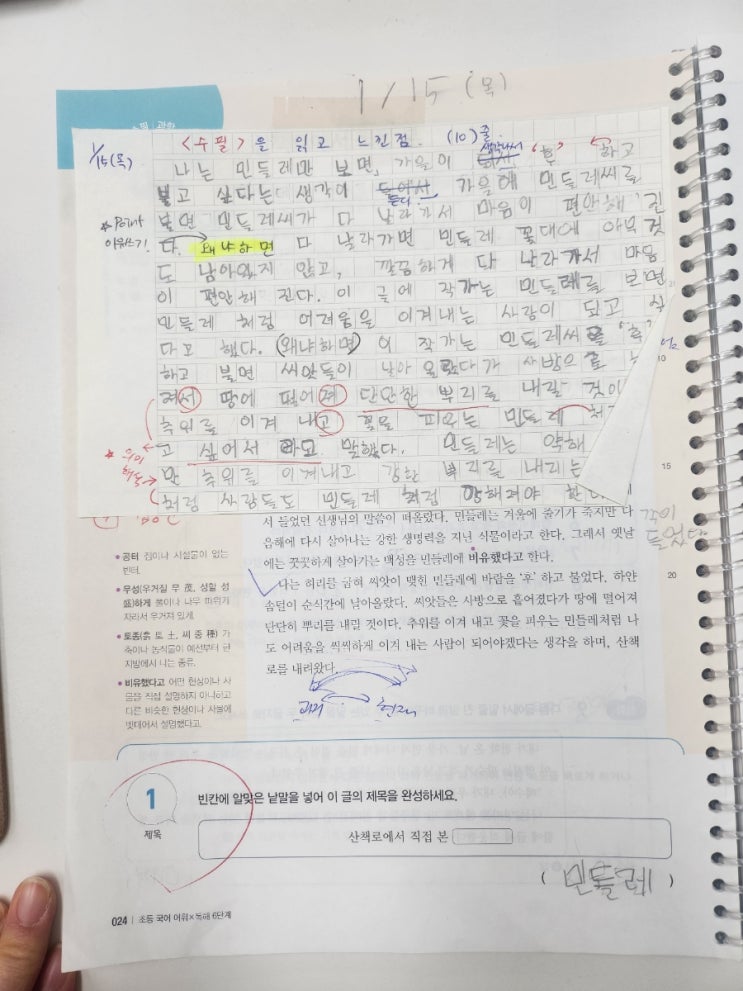 1/15 (목)
1/15(목)
<수필>을 읽고 느낀점. (10)줄
생각나서
나는 민들레만 보면, 가을이 '후' 하고
불고 싶다는 생각이 가을에 민들레씨를
든다.
불면 민들레씨가 다 날라가서 마음이 편안해 진
* Point
이어쓰기!
다. 왜냐하면 다 날라가면 민들레 꽃대에 아무 것
도 남아있지 않고, 깔끔하게 다 날라가서 마음
이 편안해 진다. 이 글에 작가는 민들레를 보면
민들레 처럼 어려움을 이겨내는 사람이 되고 싶
다고 했다. (왜냐하면) 이 작가는 민들레씨를 '후'
하고 불면 씨앗들이 날아 올랐다가 사방으로
져서 땅에 떨어져 단단한 뿌리를 내릴 것이
추위를 이겨 내고 꽃을 피우는 민들레 처
고 싶어서 라고 말했다. 민들레는 약해
* 의미
해석
만 추위를 이겨내고 강한 뿌리를 내리는
처럼 사람들도 민들레 처럼 강해져야 한
서 들었던 선생님의 말씀이 떠올랐다. 민들레는 겨울에 줄기가 죽지만 다
음해에 다시 살아나는 강한 생명력을 지닌 식물이라고 한다. 그래서 옛날
에는 꿋꿋하게 살아가는 백성을 민들레에 비유했다고 한다.
나는 허리를 굽혀 씨앗이 맺힌 민들레에 바람을 '후' 하고 불었다. 하얀
솜털이 순식간에 날아올랐다. 씨앗들은 사방으로 흩어졌다가 땅에 떨어져
단단히 뿌리를 내릴 것이다. 추위를 이겨 내고 꽃을 피우는 민들레처럼 나
도 어려움을 씩씩하게 이겨 내는 사람이 되어야겠다는 생각을 하며, 산책
로를 내려왔다.
10
15
20
들었다
과거 현재
• 공터 집이나 시설물이 없는
빈터.
• 무성(우거질 무 茂, 성할 성
盛)하게 풀이나 나무 따위가
자라서 우거져 있게.
• 토종(흙 토 土, 씨 종 種) 가
축이나 농작물이 예전부터 한
지방에서 나는 종류.
• 비유했다고 어떤 현상이나 사
물을 직접 설명하지 아니하고
다른 비슷한 현상이나 사물에
빗대어서 설명했다고.
1
제목
빈칸에 알맞은 낱말을 넣어 이 글의 제목을 완성하세요.
산책로에서 직접 본
( 민들레 )
024 | 초등 국어 어휘×독해 6단계